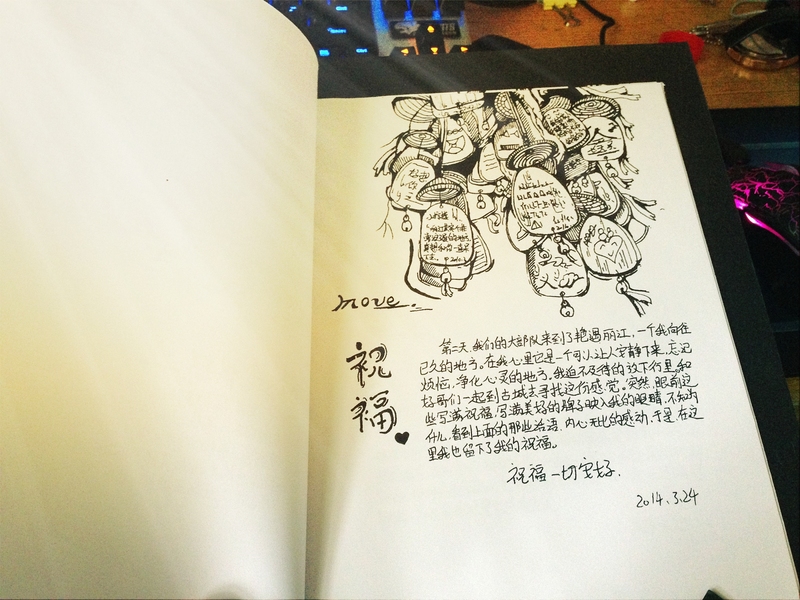 move
祝
福
第二天,我们的大部队来到了艳遇丽江,一个我向往
已久的地方。在我心里它是一个可以让人安静下来,忘记
烦恼,净化心灵的地方。我迫不及待的放下行里,和
好哥们一起到古城去寻找这份感觉。突然,眼前这
些写满祝福,写满美好的牌子映入我的眼睛,不知为
什么,看到上面的那些话语,内心无比的感动,于是,在这
里我也留下了我的祝福。
祝福一切安好.
2014.3.24